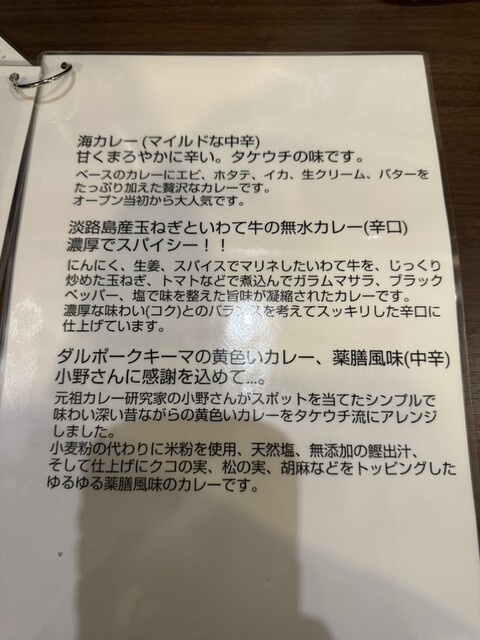 海カレー(マイルドな中辛)
甘くまろやかに辛い。タケウチの味です。
ベースのカレーにエビ、ホタテ、イカ、生クリーム、バターを
たっぷり加えた贅沢なカレーです。
オープン当初から大人気です。
淡路島産玉ねぎといわて牛の無水カレー(辛口)
濃厚でスパイシー！！
にんにく、生姜、スパイスでマリネしたいわて牛を、じっくり
炒めた玉ねぎ、トマトなどで煮込んでガラムマサラ、ブラック
ペッパー、塩で味を整えた旨味が凝縮されたカレーです。
濃厚な味わい(コク)とのバランスを考えてスッキリした辛口に
仕上げています。
ダルポークキーマの黄色いカレー、薬膳風味(中辛)
小野さんに感謝を込めて...。
元祖カレー研究家の小野さんがスポットを当てたシンプルで
味わい深い昔ながらの黄色いカレーをタケウチ流にアレンジ
しました。
小麦粉の代わりに米粉を使用、天然塩、無添加の鰹出汁、
そして仕上げにクコの実、松の実、胡麻などをトッピングした
ゆるゆる薬膳風味のカレーです。